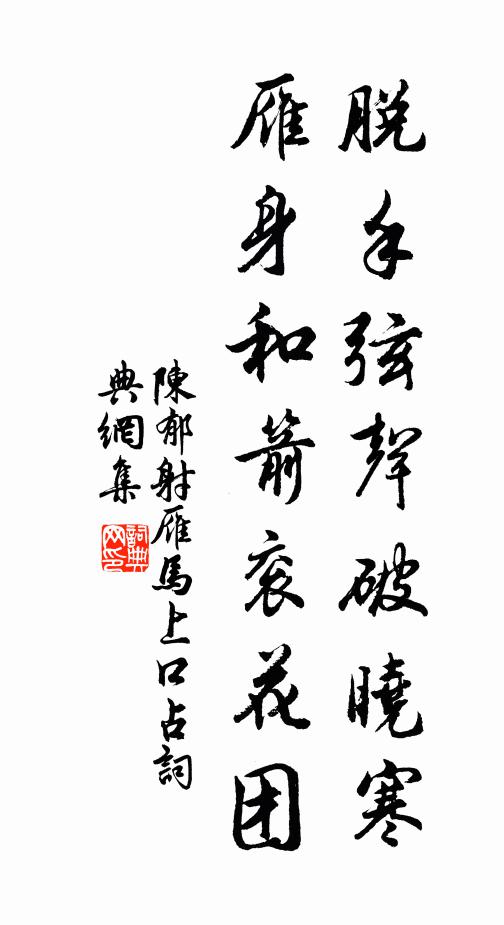 脱手弦聲破曉寒
雁身和箭衮花团
陳郁射雁馬上口占詞
典網集
詞典
网印